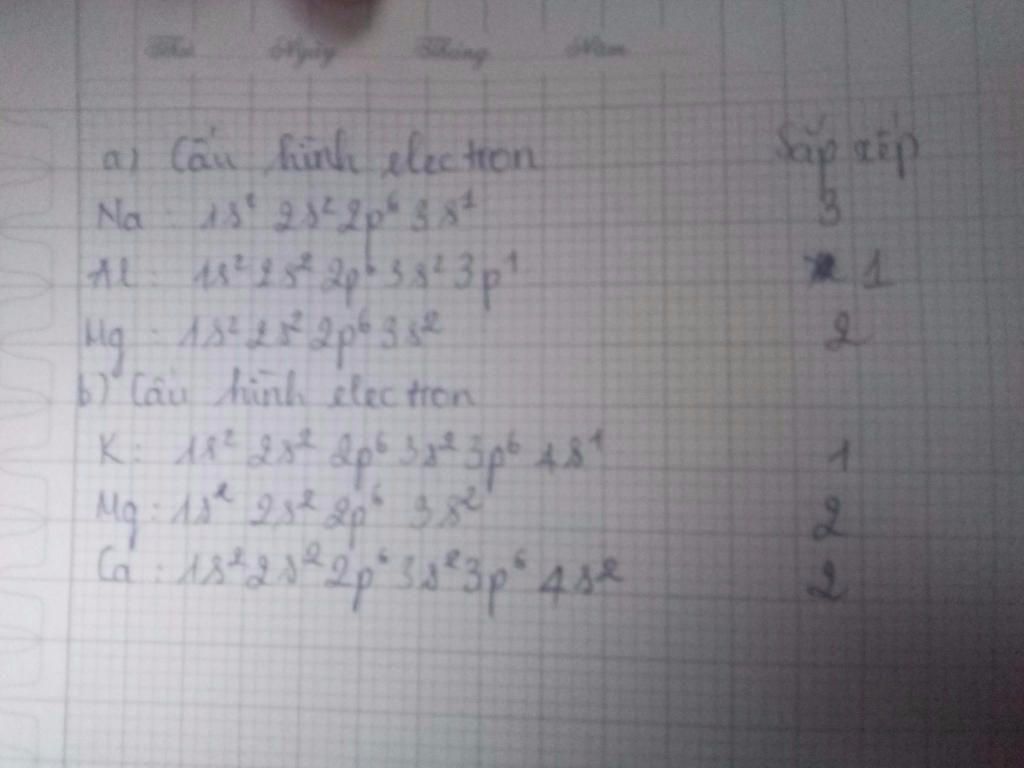 Thứ Ngày Tháng Năm
a) Cấu hình electron Sắp xếp
Na : 1s² 2s² 2p⁶ 3s¹ 3
Al : 1s² 2s² 2p⁶ 3s² 3p¹ 1
Mg : 1s² 2s² 2p⁶ 3s² 2
b) Cấu hình electron
K : 1s² 2s² 2p⁶ 3s² 3p⁶ 4s¹ 1
Mg : 1s² 2s² 2p⁶ 3s² 2
Ca : 1s² 2s² 2p⁶ 3s² 3p⁶ 4s² 2